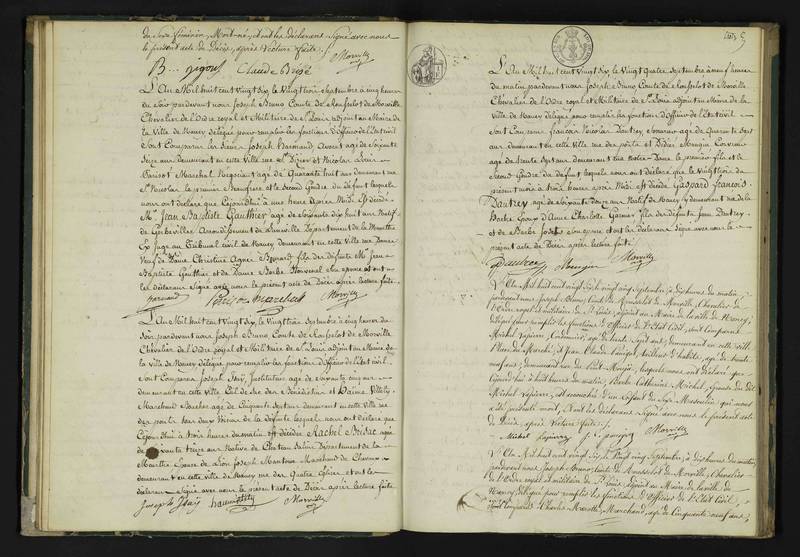 du Sexe féminin, Mort-né, et ont les déclarans Signé avec nous
le présent acte de Décès, après Lecture faite.
Morville
Claude Brigé
L'An Mil huit cent Vingt Six le Vingt trois Septembre à cinq heures
du Soir pardevant nous Joseph Bruno Comte de Rousselot de Morville
Chevalier de l'Ordre royal et Militaire de St Louis adjoint au Maire de
la Ville de Nancy délégué pour remplir les fonctions d'Officier de l'Etat civil
Sont Comparus les Sieurs Joseph Avocat agé de Soixante
Seize ans demeurant en cette Ville rue St Dizier et Nicolas
Marchal Négociant agé de Quarante huit ans demeurant rue
St Nicolas le premier et le Second Gendre du défunt lesquels
nous ont déclaré que Cejourd'hui à une heure Après Midi Est décédé
Mr Jean Baptiste Gauthier agé de Soixante dix huit ans Natif
de Gerbeviller Arrondissement de Lunéville Département de la Meurthe
Ex Juge au Tribunal civil de Nancy demeurant en cette Ville
Veuf de Dame Christine Agnès fils des défunts Mr Jean
Baptiste Gauthier et de Dame Barbe Son épouse et ont
les déclarans Signé avec nous le présent acte de Décès après lecture faite.
Marchal Morville
L'An Mil huit cent Vingt Six le Vingt trois Septembre à cinq heures du
Soir pardevant nous Joseph Bruno Comte de Rousselot de Morville
Chevalier de l'Ordre royal et Militaire de St Louis adjoint au Maire de
la Ville de Nancy délégué pour remplir les fonctions d'Officier de l'Etat civil
Sont Comparus Joseph Instituteur agé de Soixante cinq ans
demeurant en cette Ville rue des Bénédictins et Haïme
Marchand agé de Cinquante Sept ans demeurant en cette Ville rue
tous deux Voisins de la défunte lesquels nous ont déclaré que
Cejourd'hui à trois heures du matin est décédée Rachel
agée de Soixante Seize ans Native de Château Salins Département de la
Meurthe Epouse de Lion Joseph Marchand de
demeurant en cette Ville de Nancy rue des Quatre Eglises et ont les
déclarans Signé avec nous le présent acte de Décès après lecture faite
Joseph Morville
L'An Mil huit cent Vingt Six le Vingt quatre Septembre à neuf heures
du matin pardevant nous Joseph Bruno Comte de Rousselot de Morville
Chevalier de l'Ordre royal et Militaire de St Louis adjoint au Maire de la
Ville de Nancy délégué pour remplir les fonctions d'Officier de l'Etat civil
Sont Comparus François Nicolas Dautrey agé de Quarante Sept
ans demeurant en cette Ville rue des ponts et Didier Mougin
agé de trente Sept ans demeurant rue Notre Dame le premier fils et le
Second Gendre du défunt lesquels nous ont déclaré que le Vingt trois du
présent mois à trois heures après Midi est décédé Gaspard François
Dautrey agé de Soixante douze ans Natif de Nancy y demeurant rue de la
Epoux d'Anne Charlotte Garnier fils des défunts Jean Dautrey
et de Barbe Son épouse et ont les déclarans Signé avec nous le
présent acte de Décès après lecture faite.
Dautrey Mougin Morville
L'An Mil huit cent vingt Six le Vingt Sept Septembre, à dix heures du matin,
pardevant nous Joseph Bruno, Comte de Rousselot de Morville, Chevalier de
l'Ordre royal et militaire de St Louis, adjoint au Maire de la ville de Nancy,
délégué pour remplir les fonctions d'Officier de l'Etat Civil, sont Comparus
Michel Lapierre, agé de trente Sept ans, demeurant en cette ville
Place du Marché, et Jean Claude tailleur d'habits, agé de trente
neuf ans, demeurant rue du Pont Mouja, lesquels nous ont déclaré que
Cejourd'hui à huit heures du matin, Barbe Catherine Michel, épouse du dit
Michel Lapierre, est accouchée d'un enfant du Sexe Masculin qui nous
a été présenté mort, et ont les déclarans Signé avec nous le présent acte
de Décès, après lecture faite.
Michel Lapierre Morville
L'An Mil huit cent vingt Six le Vingt Sept Septembre, à dix heures du matin,
pardevant nous Joseph Bruno, Comte de Rousselot de Morville, Chevalier
de l'Ordre royal et militaire de St Louis, adjoint au Maire de la ville de
Nancy délégué pour remplir les fonctions d'Officier de l'Etat Civil,
sont comparus Charles Marchand, agé de Cinquante neuf ans,